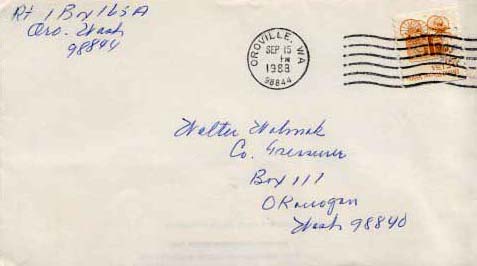 Rt 1 Box 165A
Oro. Wash
98844
OROVILLE, WA
SEP 15
PM
1988
98844
Walter
Co. Treasurer
Box 111
Okanogan
Wash 98840